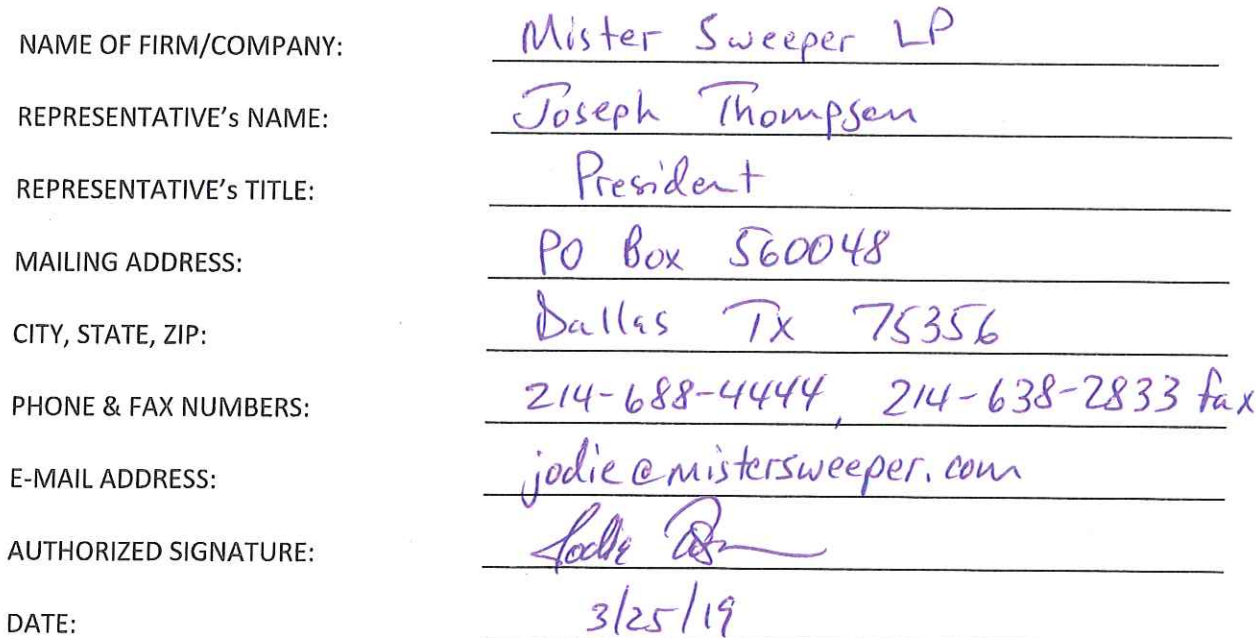 NAME OF FIRM/COMPANY: Mister Sweeper LP
REPRESENTATIVE's NAME: Joseph Thompson
REPRESENTATIVE's TITLE: President
MAILING ADDRESS: PO Box 560048
CITY, STATE, ZIP: Dallas Tx 75356
PHONE & FAX NUMBERS: 214-688-4444, 214-638-2833 fax
E-MAIL ADDRESS: jodie@mistersweeper.com
AUTHORIZED SIGNATURE: Jodie
DATE: 3/25/19